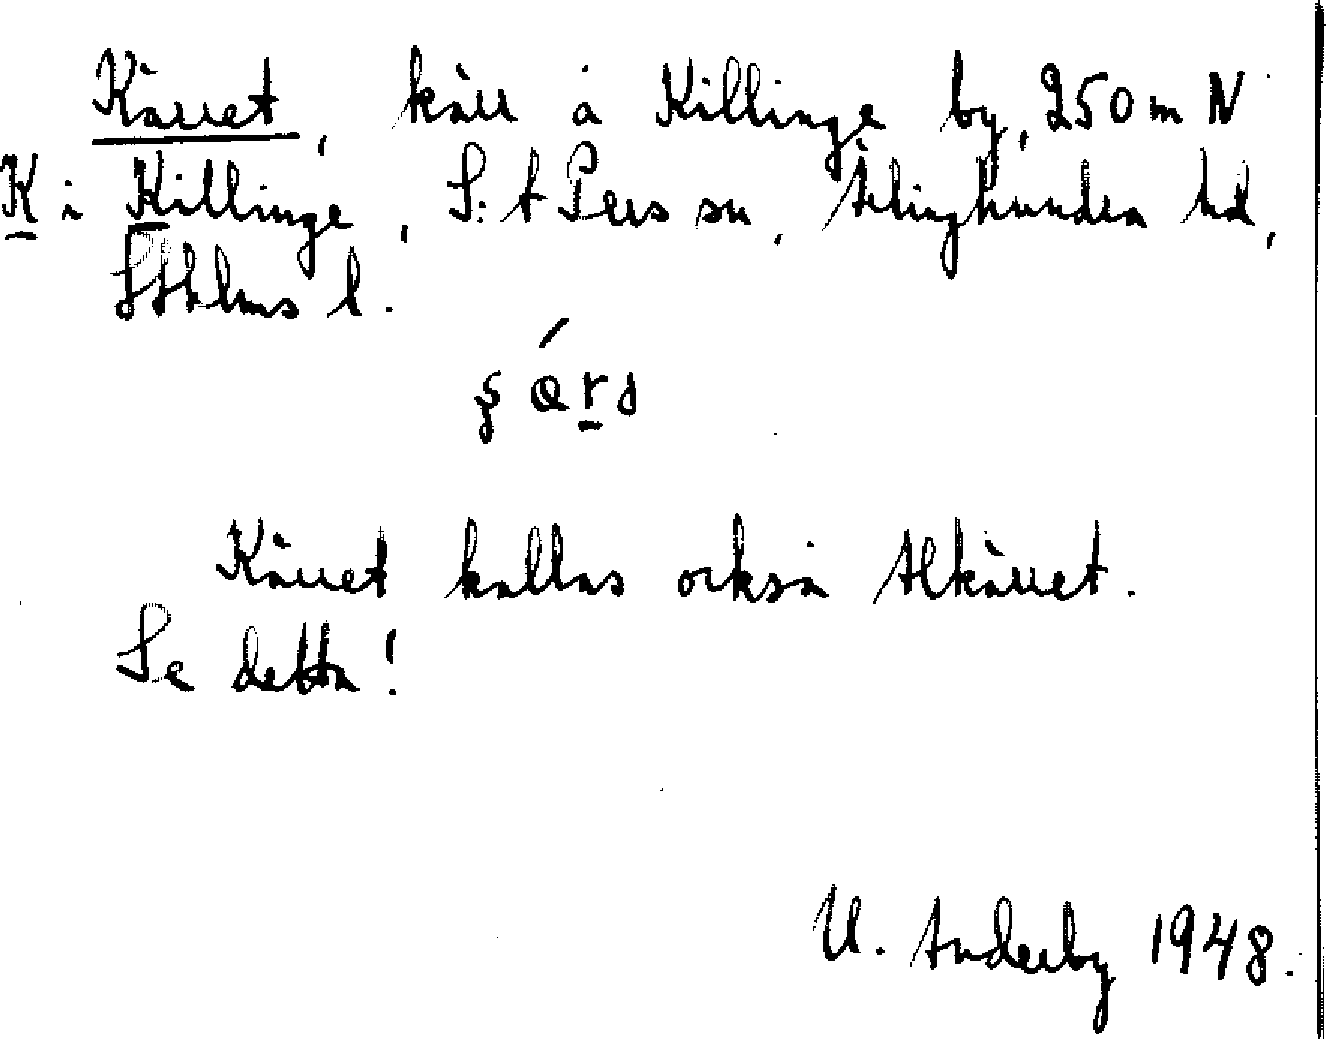 Kärret, kärr å Killinge by, 250 m N
K i Killinge, S:t Pers sn, Ärlinghundra hd,
Sthlms l.
Kärret kallas också Alkärret.
Se detta!
U. Anderby 1948.